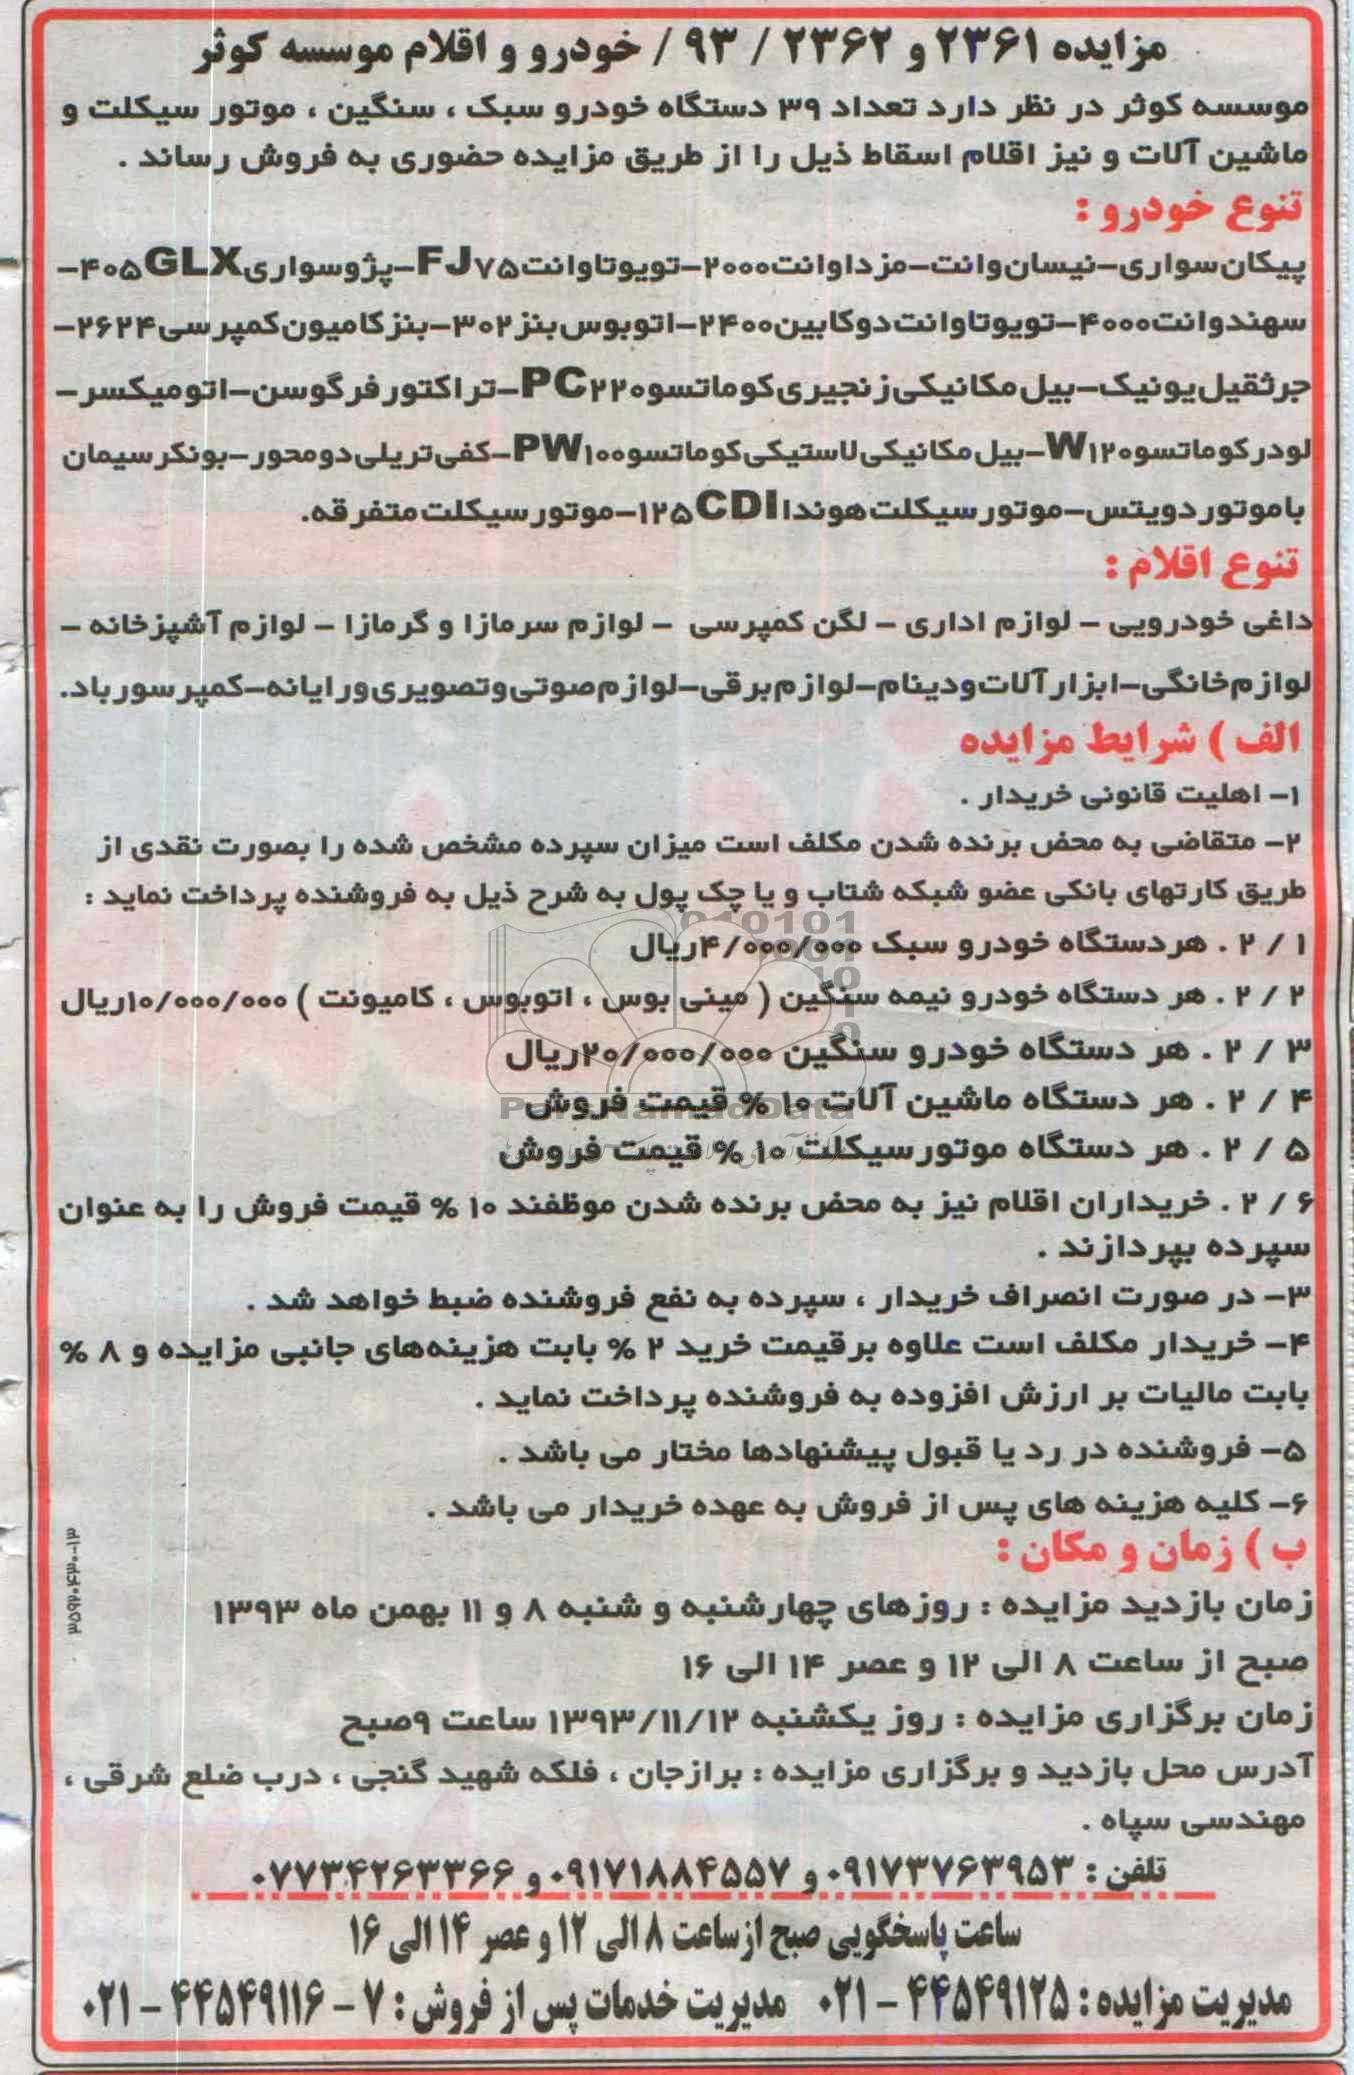 مزایده ۲۳۶۱ و ۲۳۶۲ / ۹۳ / خودرو و اقلام موسسه کوثر
موسسه کوثر در نظر دارد تعداد ۳۹ دستگاه خودرو سبک ، سنگین ، موتور سیکلت و
ماشین آلات و نیز اقلام اسقاط ذیل را از طریق مزایده حضوری به فروش رساند .
تنوع خودرو :
پیکان سواری-نیسان وانت-مزدا وانت ۲۰۰۰-تویوتا وانت FJ۷۵-پژو سواری ۴۰۵GLX-
سهند وانت ۴۰۰۰-تویوتا وانت دوکابین ۲۴۰۰-اتوبوس بنز ۳۰۲-بنز کامیون کمپرسی ۲۶۲۴-
جرثقیل یونیک-بیل مکانیکی زنجیری کوماتسو PC۲۲۰-تراکتور فرگوسن-اتومیکسر-
لودر کوماتسو W۱۲۰-بیل مکانیکی لاستیکی کوماتسو PW۱۰۰-کفی تریلی دو محور-بونکر سیمان
با موتور دویتس-موتور سیکلت هوندا ۱۲۵CDI-موتور سیکلت متفرقه.
تنوع اقلام :
داغی خودرویی - لوازم اداری - لگن کمپرسی - لوازم سرمازا و گرمازا - لوازم آشپزخانه -
لوازم خانگی-ابزارآلات و دینام-لوازم برقی-لوازم صوتی و تصویری و رایانه-کمپرسور باد.
الف ) شرایط مزایده
۱- اهلیت قانونی خریدار .
۲- متقاضی به محض برنده شدن مکلف است میزان سپرده مشخص شده را بصورت نقدی از
طریق کارتهای بانکی عضو شبکه شتاب و یا چک پول به شرح ذیل به فروشنده پرداخت نماید :
۲ / ۱ . هردستگاه خودرو سبک ۴/۰۰۰/۰۰۰ریال
۲ / ۲ . هر دستگاه خودرو نیمه سنگین ( مینی بوس ، اتوبوس ، کامیونت ) ۱۰/۰۰۰/۰۰۰ریال
۲ / ۳ . هر دستگاه خودرو سنگین ۲۰/۰۰۰/۰۰۰ریال
۲ / ۴ . هر دستگاه ماشین آلات ۱۰ % قیمت فروش
۲ / ۵ . هر دستگاه موتورسیکلت ۱۰ % قیمت فروش
۲ / ۶ . خریداران اقلام نیز به محض برنده شدن موظفند ۱۰ % قیمت فروش را به عنوان
سپرده بپردازند .
۳- در صورت انصراف خریدار ، سپرده به نفع فروشنده ضبط خواهد شد .
۴- خریدار مکلف است علاوه برقیمت خرید ۲ % بابت هزینه‌های جانبی مزایده و ۸ %
بابت مالیات بر ارزش افزوده به فروشنده پرداخت نماید .
۵- فروشنده در رد یا قبول پیشنهادها مختار می باشد .
۶- کلیه هزینه های پس از فروش به عهده خریدار می باشد .
ب ) زمان و مکان :
زمان بازدید مزایده : روزهای چهارشنبه و شنبه ۸ و ۱۱ بهمن ماه ۱۳۹۳
صبح از ساعت ۸ الی ۱۲ و عصر ۱۴ الی ۱۶
زمان برگزاری مزایده : روز یکشنبه ۱۳۹۳/۱۱/۱۲ ساعت ۹صبح
آدرس محل بازدید و برگزاری مزایده : برازجان ، فلکه شهید گنجی ، درب ضلع شرقی ،
مهندسی سپاه .
تلفن : ۰۹۱۷۳۷۶۳۹۵۳ و ۰۹۱۷۱۸۸۴۵۵۷ و ۰۷۷۳۴۲۶۳۳۶۶
ساعت پاسخگویی صبح ازساعت ۸ الی ۱۲ و عصر ۱۴ الی ۱۶
مدیریت مزایده : ۴۴۵۴۹۱۲۵ - ۰۲۱ مدیریت خدمات پس از فروش : ۷ - ۴۴۵۴۹۱۱۶ - ۰۲۱